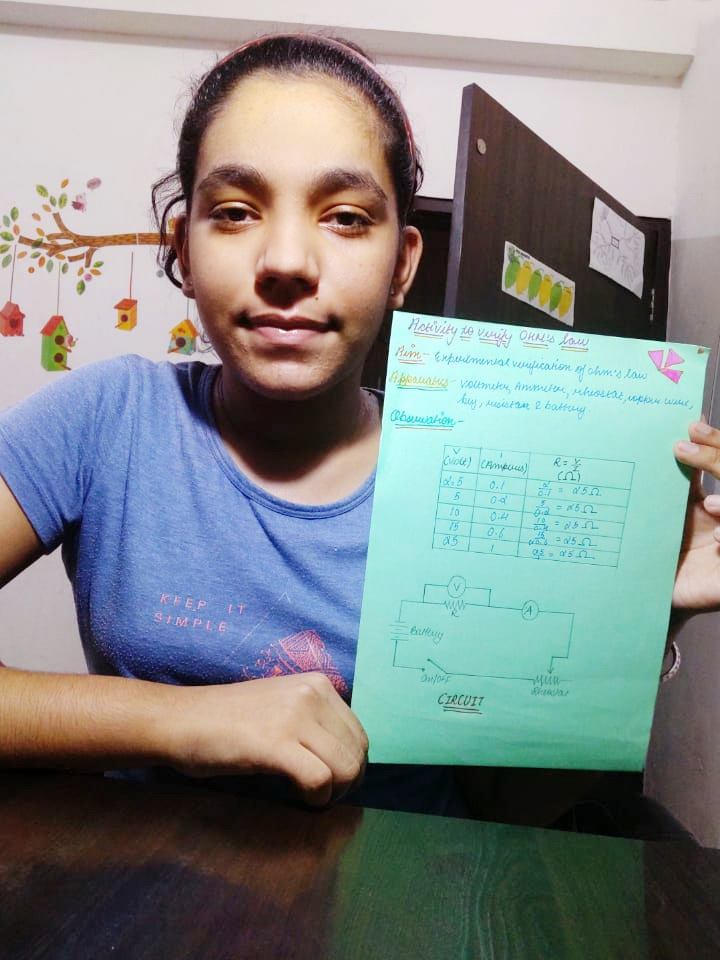 Activity to verify OHM's law
Aim - Experimental verification of ohm's law
Apparatus - voltmeter, Ammeter, rheostat, copper wire,
key, resistance & battery
Observation -
V (Volt) I (Amperes) R = V/I (Ω)
2.5 0.1 2/0.1 = 25 Ω
5 0.2 5/0.2 = 25 Ω
10 0.4 10/0.4 = 25 Ω
15 0.6 15/0.6 = 25 Ω
25 1 25/1 = 25 Ω
V
R
A
Battery
On/Off
Rheostat
CIRCUIT
KEEP IT
SIMPLE